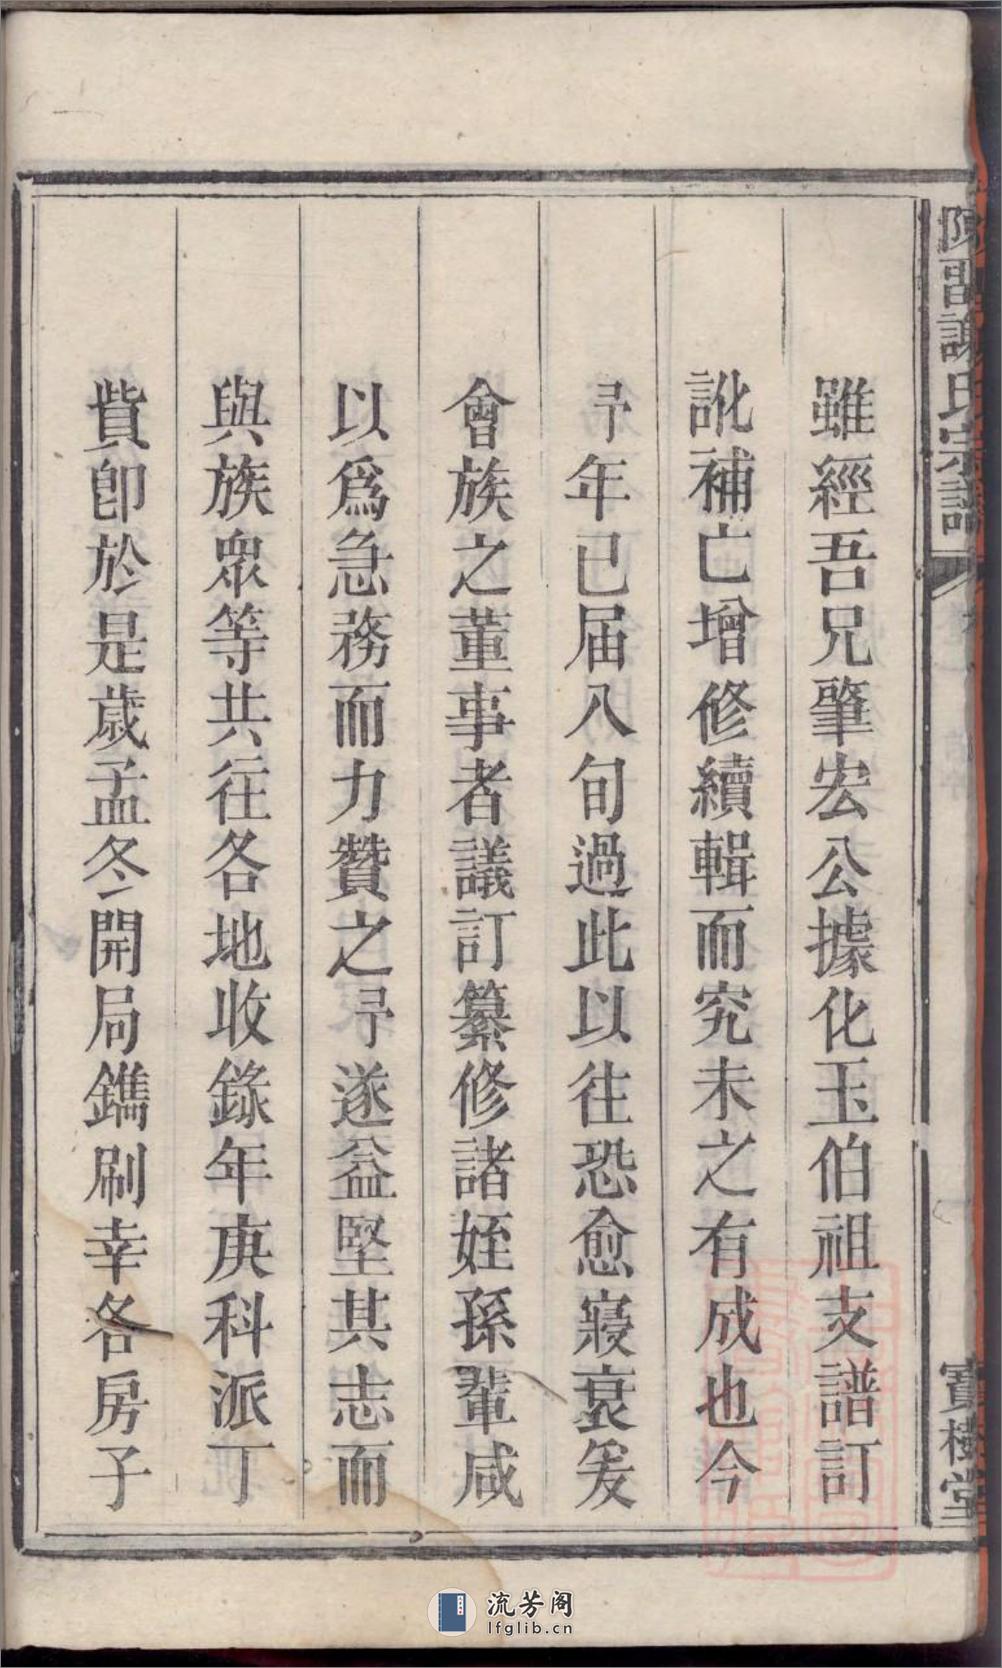 雖經吾兄肇宏公據化玉伯祖支譜訂
訛補亡增修續輯而究未之有成也今
予年已届八旬過此以往恐愈寖衰爰
會族之董事者議訂纂修諸姪孫輩咸
以爲急務而力贊之予遂益堅其志而
與族眾等共往各地收錄年庚科派丁
貲卽於是歲孟冬開局鐫刷幸各房子
謝氏宗譜
寶樹堂
流芳阁
lfglib.cn